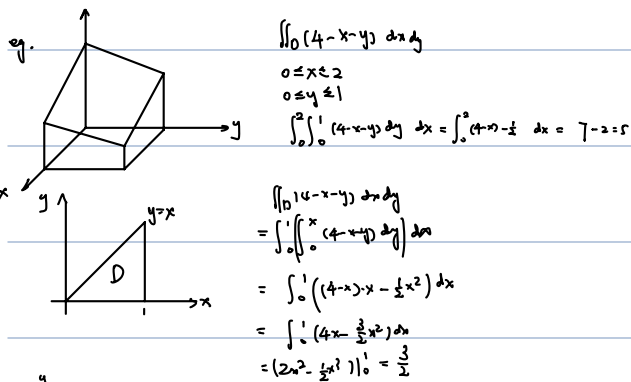 eg.
∬_D (4-x-y) dxdy
0≤x≤2
0≤y≤1
∫₀²∫₀¹ (4-x-y) dy dx = ∫₀² (4-x)-½ dx = 7-2=5
y
x
y
y=x
D
1
x
∬_D (4-x-y) dxdy
= ∫₀¹(∫₀ˣ (4-x-y) dy) dx
= ∫₀¹ ((4-x)·x - ½x²) dx
= ∫₀¹ (4x - 3/2 x²) dx
= (2x² - ½x³)|₀¹ = 3/2
y